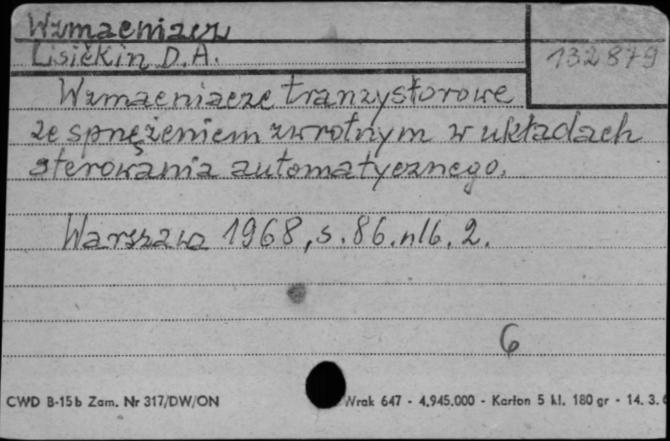 Wzmacniacz
132879
Lisičkin D.A.
Wzmacniacze tranzystorowe
ze sprzężeniem zwrotnym w układach
sterowania automatycznego.
Warszawa 1968, s. 86. nlb. 2.
6
CWD B-15b Zam. Nr 317/DW/ON Wrak 647 - 4.945.000 - Karton 5 kl. 180 gr - 14. 3.